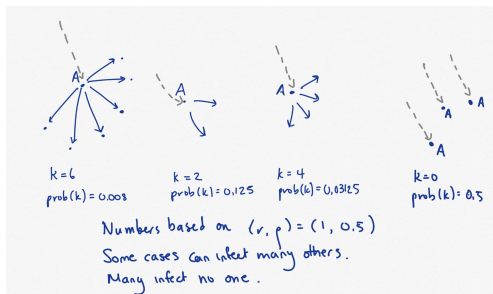 A
A
A
A
A
A
k=6
prob(k)=0.008
k=2
prob(k)=0.125
k=4
prob(k)=0,03125
k=0
prob(k)=0.5
Numbers based on (r, ρ) = (1, 0.5)
Some cases can infect many others.
Many infect no one.